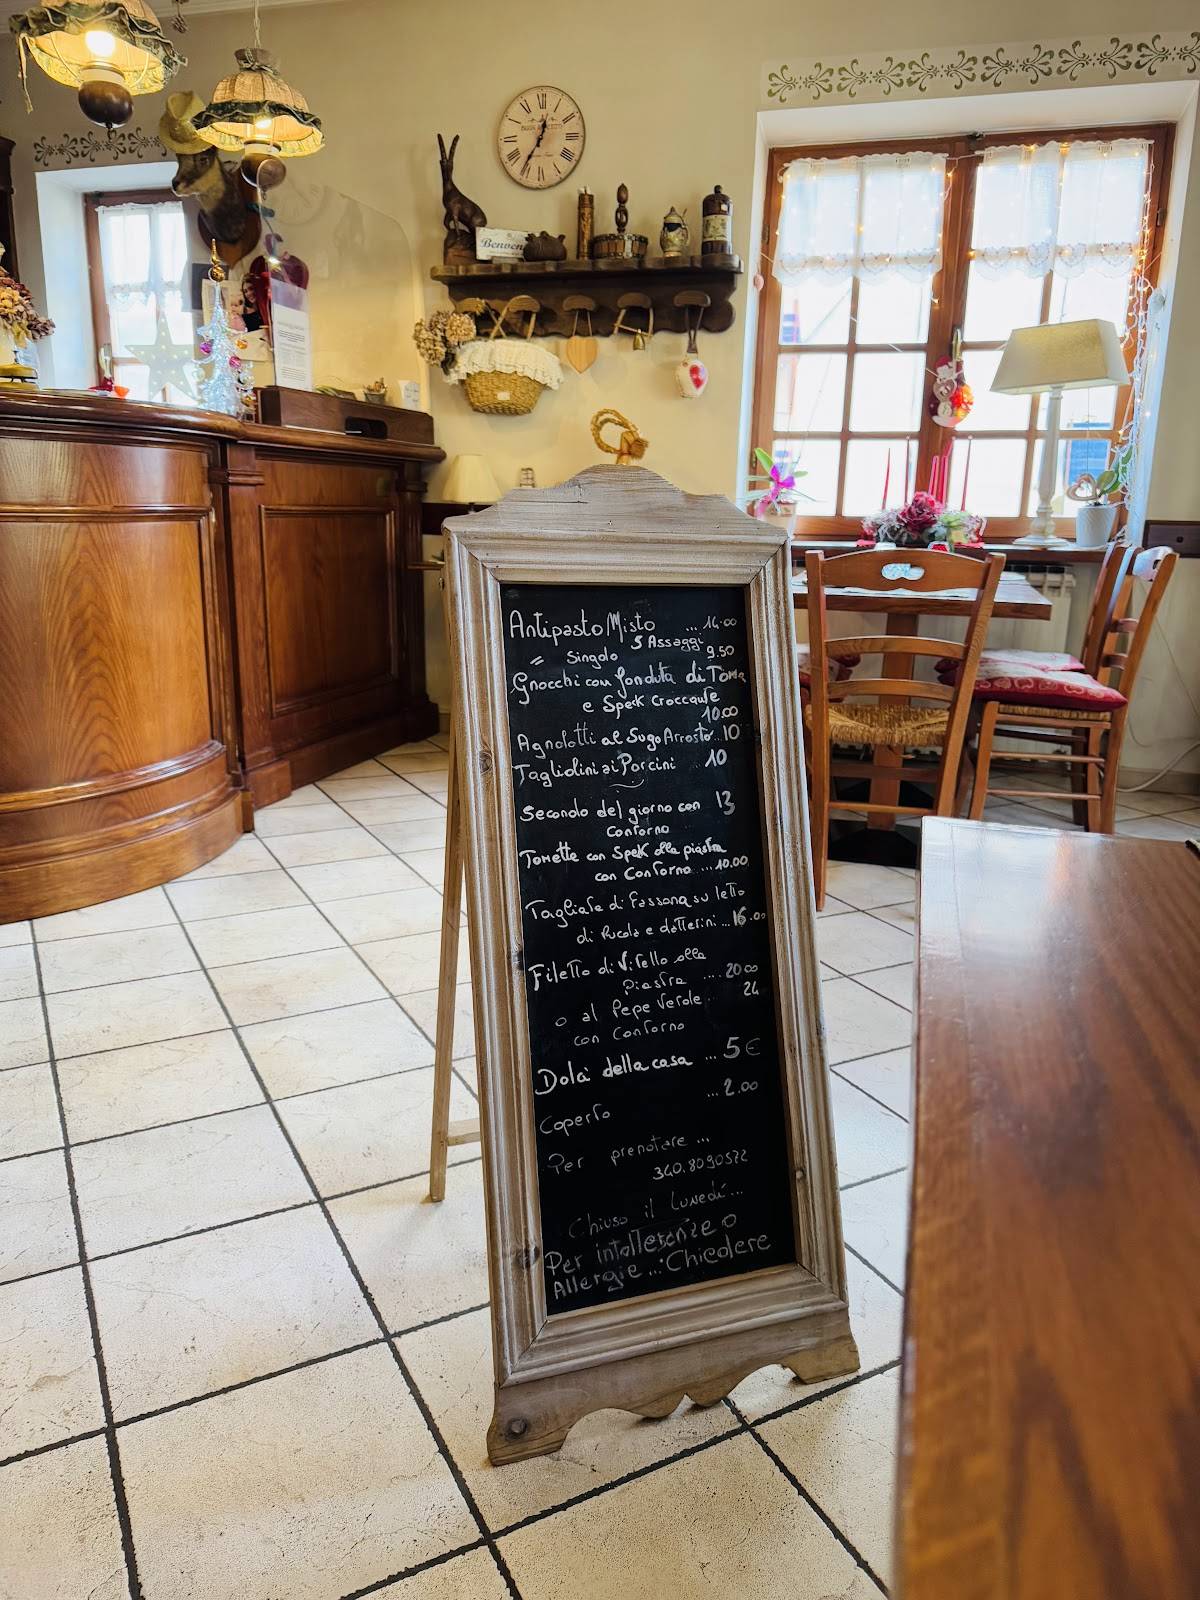 Benven
Antipasto Misto ... 14.00
5 Assaggi
" Singolo 9.50
Gnocchi con fonduta di Toma
e Speck Croccante
10.00
Agnolotti al Sugo Arrosto .. 10
Tagliolini ai Porcini 10
Secondo del giorno con 13
Contorno
Tomette con Speck alla piastra
con Contorno ... 10.00
Tagliata di Fassona su letto
di Rucola e datterini ... 16.00
Filetto di Vitello alla
Piastra .... 20.00
o al Pepe Verde .. 24
con Contorno
Dolci della casa ... 5 €
Coperto ... 2.00
Per prenotare ...
340.8090572
Chiuso il Lunedì ...
Per intolleranze o
Allergie ... Chiedere